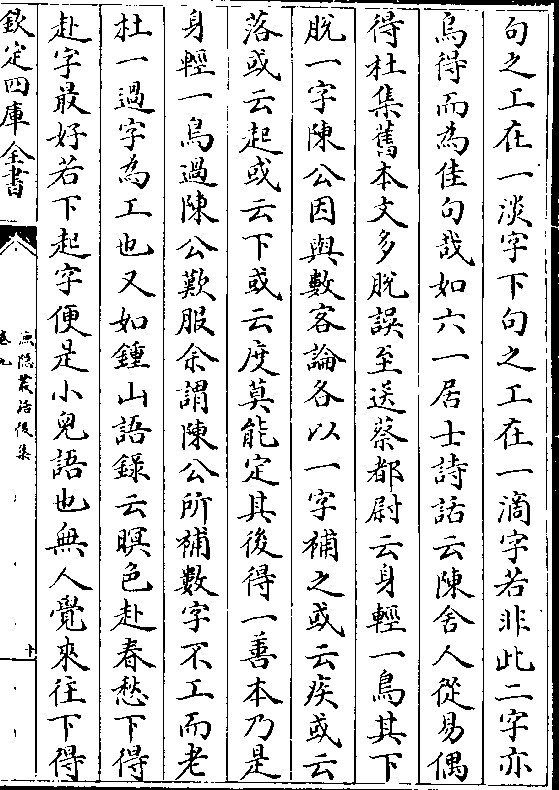 句之工在一淡字下句之工在一滴字若非此二字亦
烏得而為佳句哉如六一居士詩話云陳舍人從易偶
得杜集舊本文多脫誤至送蔡都尉云身輕一鳥其下
脫一字陳公因與數客論各以一字補之或云疾或云
落或云起或云下或云度莫能定其後得一善本乃是
身輕一鳥過陳公歎服余謂陳公所補數字不工而老
杜一過字為工也又如鍾山語錄云暝色赴春愁下得
赴字最好若下起字便是小兒語也無人覺來往下得
欽定四庫全書
漁隐叢話後集
卷九
十